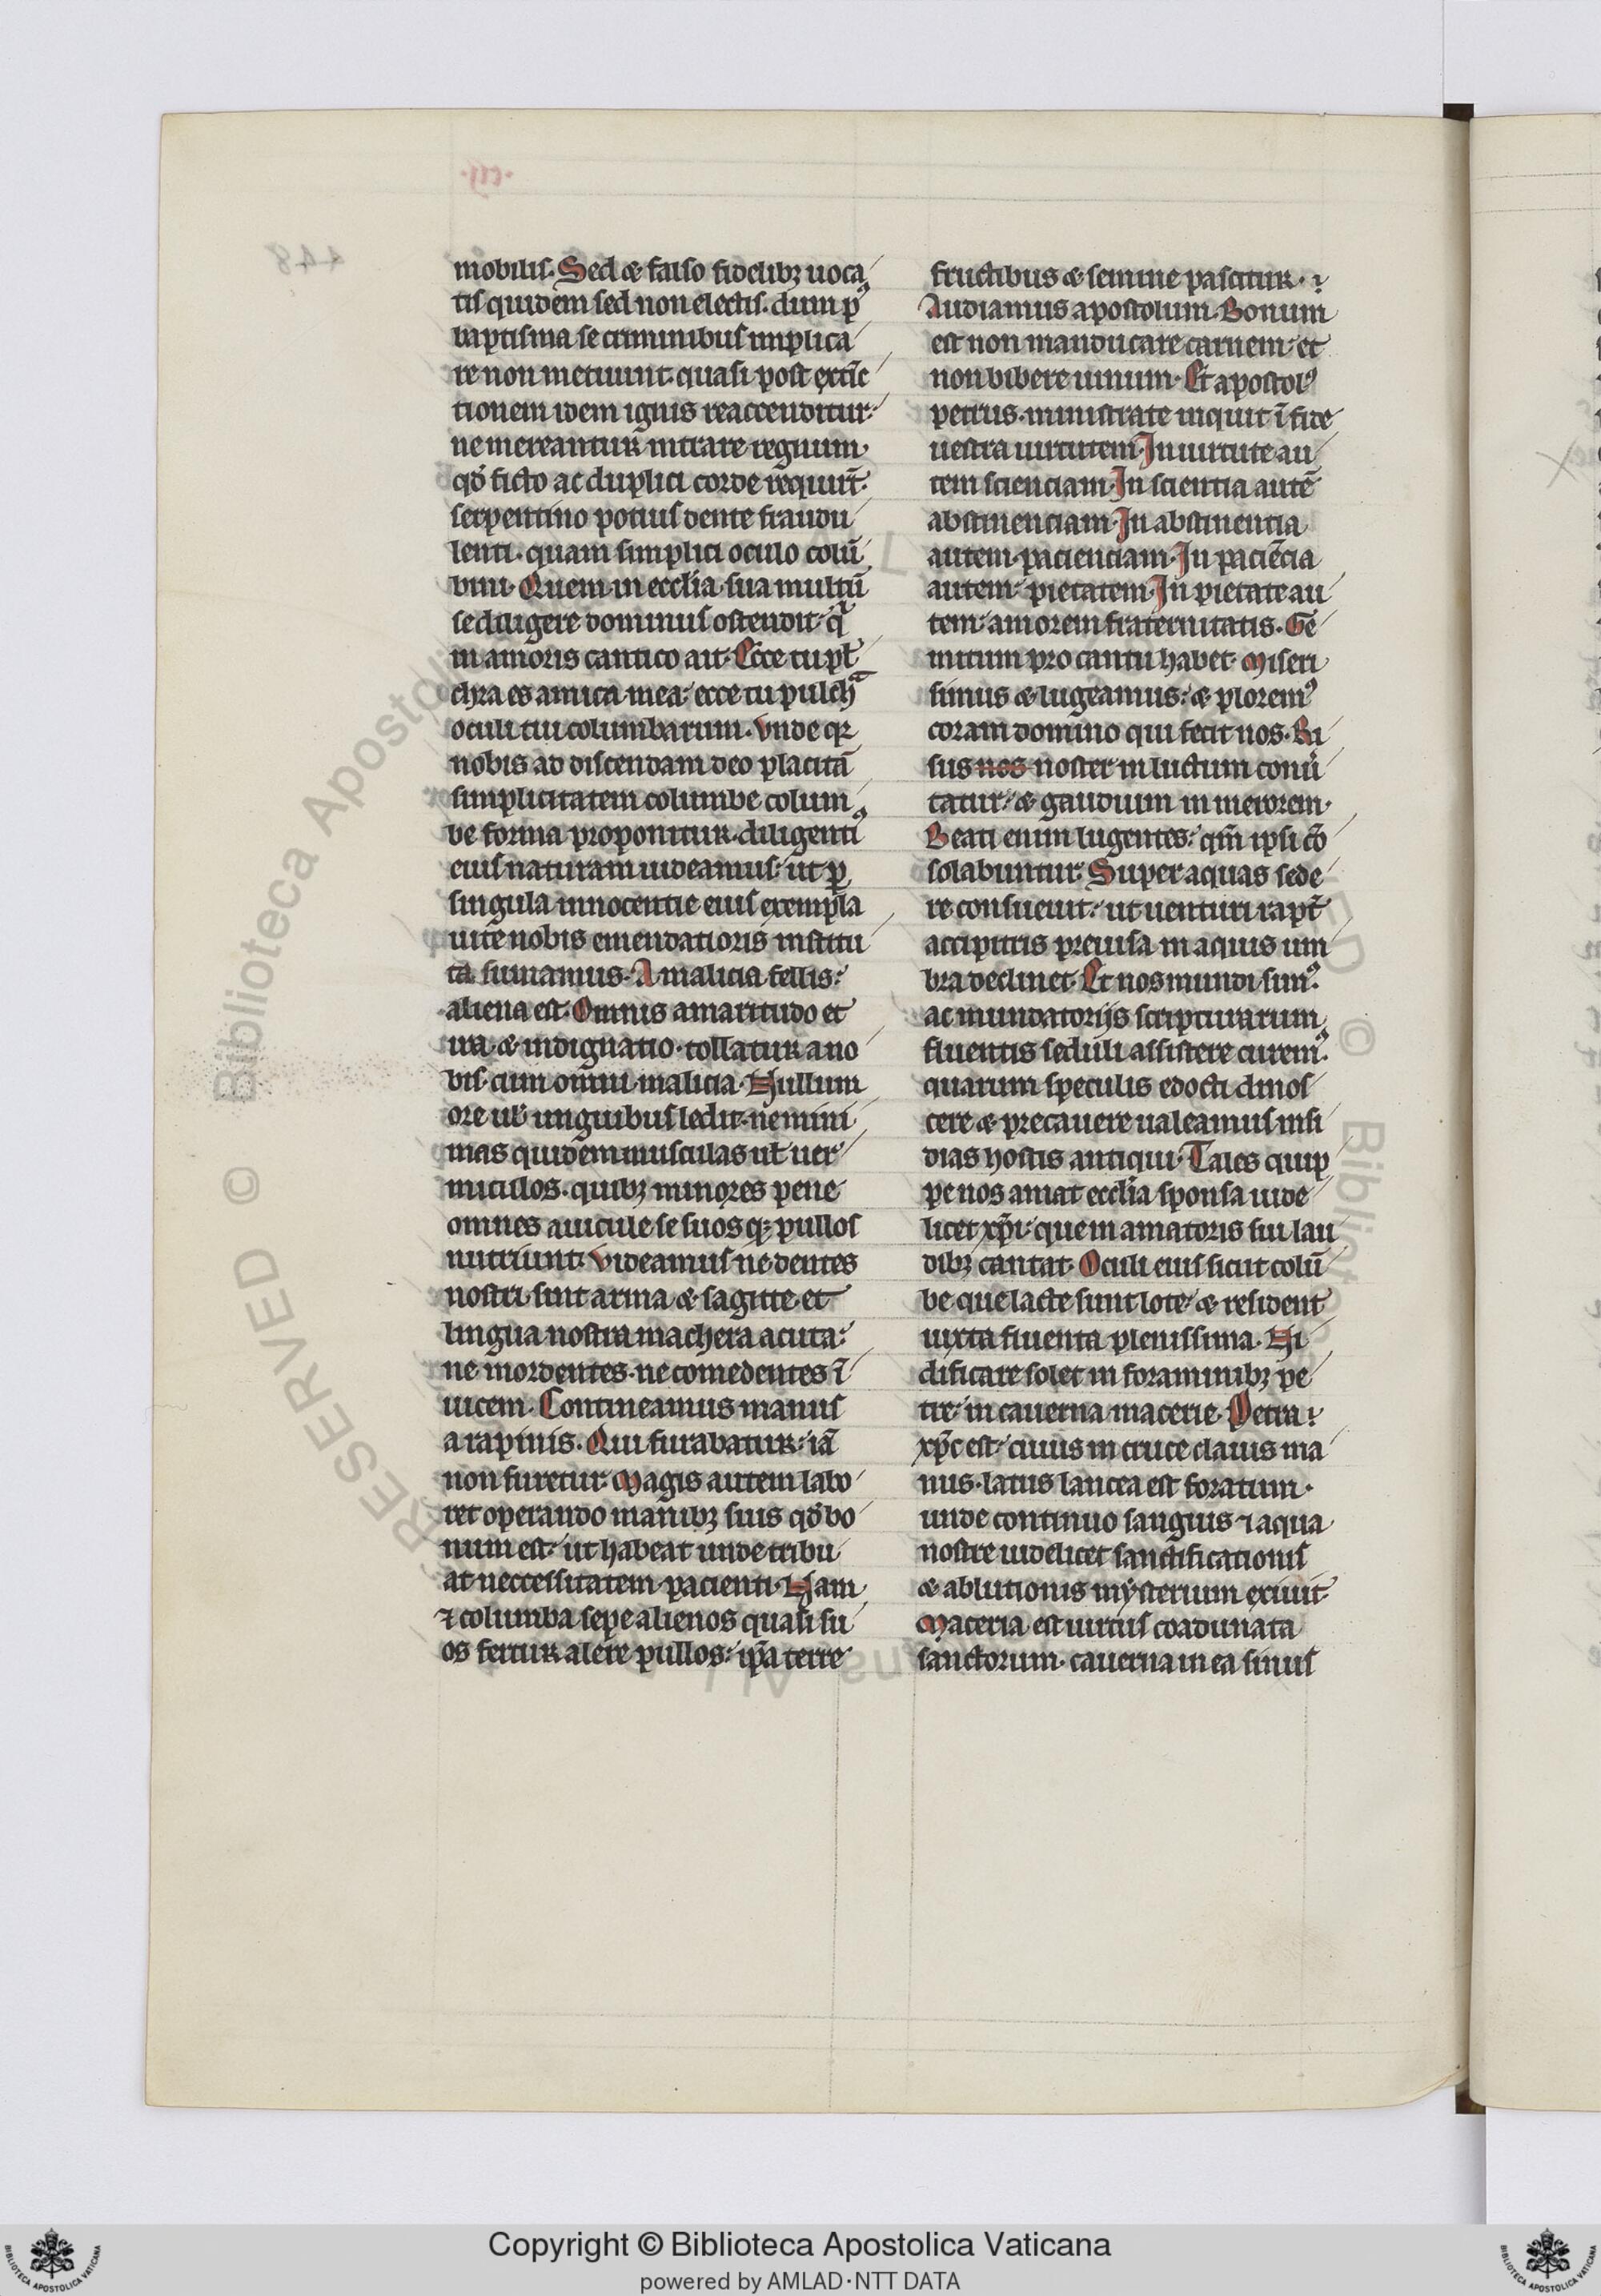 mobilis. Sed & falso fidelibꝫ uoca
tis quidem sed non electis. dum pꝰ
baptisma se criminibus implica
re non metuunt. quasi post extīc
tionem idem ignis reaccenditur.
ne mereantur intrare regnum.
qd̓ ficto ac duplici corde requirt̄.
serpentino potius dente fraudu
lenti. quam simplici oculo colū
bini. Quem in ecclīa sua multū
se diligere dominus ostendit. q
in amoris cantico ait. Ecce tu pl̄
chra es amica mea: ecce tu pulchᵃ
oculi tui columbarum. Vnde qꝛ
nobis ad discendam deo placitā
simplicitatem columbe colum
be forma proponitur. diligentiꝰ
eius naturam uideamus: ut ꝑ
singula innocentie eius exempla
uite nobis emendatioris institu
ta sumamus. A malicia fellis:
aliena est. Omnis amaritudo et
ira & indignatio. tollatur a no
bis. cum omni malicia. Nullum
ore ul̓ unguibus ledit. ne mini
mas quidem musculas ul̓ uer
miculos. quibꝫ minores pene
omnes auicule se suosqꝫ pullos
nutriunt. Videamus ne dentes
nostri sint arma & sagitte et
lingua nostra machera acuta:
ne mordentes. ne comedentes ī
uicem. Contineamus manus
a rapinis. Qui furabatur: iā
non furetur. Magis autem labo
ret operando manibꝫ suis qd̓ bo
num est. ut habeat unde tribu
at neccessitatem pacienti. Nam
⁊ columba sepe alienos quasi su
os fertur alere pullos: ip̄a terre
fructibus & semine pascitur.
Audiamus apostolum. Bonum
est non manducare carnem et
non bibere uinum. Et apostolꝰ
petrus. ministrate inquit ī fide
uestra uirtutem. In uirtute au
tem scienciam. In scientia autē
abstinenciam. In abstinentia
autem. pacienciam. In paciēcia
autem pietatem. In pietate au
tem amorem fraternitatis. Ge
mitum pro cantu habet. Miseri
simus & lugeamus: & ploremꝰ
coram domino qui fecit nos. Ri
sus nos noster in luctum conu̓
tatur: & gaudium in merorem.
Beati enim lugentes: qm̄ ipsi cō
solabuntur. Super aquas sede
re consueuit: ut uenturi rapt̄
accipitris preuisa in aquis um
bra declinet. Et nos mundi simꝰ.
ac mundatorijs scripturarum
fluentis seduli assistere curemꝰ.
quarum speculis edocti dinos
cere & precauere ualeamus insi
dias hostis antiqui. Tales quip
pe nos amat ecclīa sponsa uide
licet xp̄i. que in amatoris sui lau
dibꝫ cantat. Oculi eius sicut colū
be que lacte sunt lote & resident
iuxta fluenta plenissima. Ni
dificare solet in foraminibꝫ pe
tre in cauerna macerie. Petra:
xp̄c est. cuius in cruce clauis ma
nus. latus lancea est foratum.
unde continuo sanguis ⁊ aqua
nostre uidelicet sanctificationis
& ablutionis mysterium exiuit.
Maceria est uirtus coadunata
sanctorum. cauerna in ea sinus
Copyright © Biblioteca Apostolica Vaticana
powered by AMLAD·NTT DATA